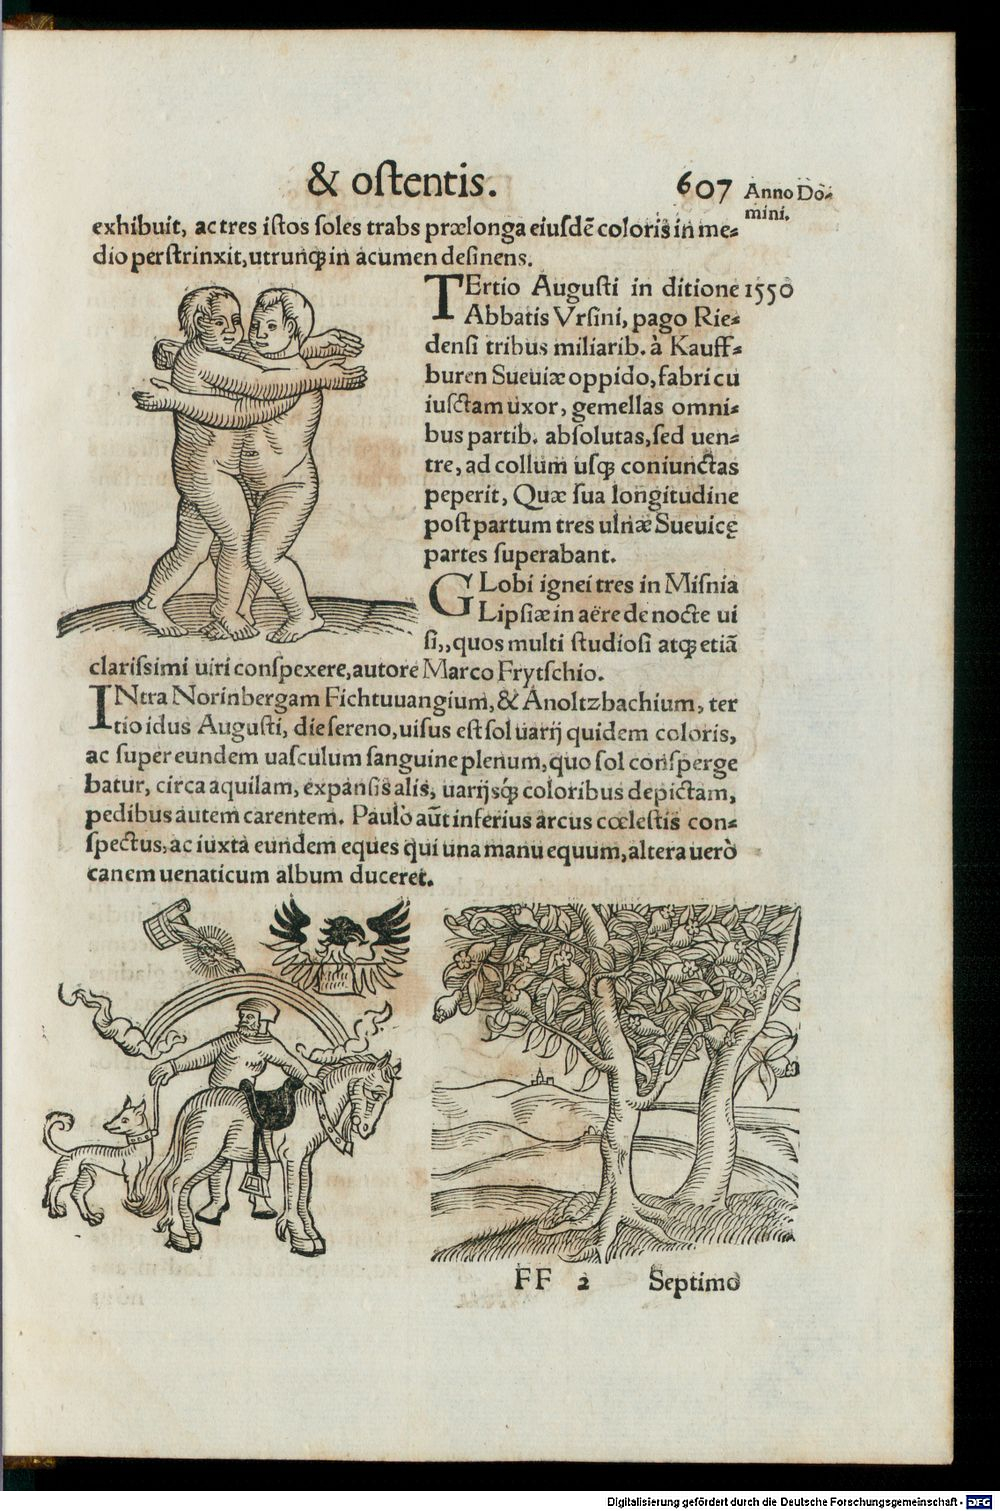 & oſtentis.
607 Anno Do⸗
mini.
exhibuit, ac tres iſtos ſoles trabs prælonga eiuſdẽ coloris in me⸗
dio perſtrinxit, utrunqꝫ in acumen deſinens.
TErtio Auguſti in ditione 1550
Abbatis Vrſini, pago Rie⸗
denſi tribus miliarib. à Kauff⸗
buren Sueuiæ oppido, fabri cu
iuſctam uxor, gemellas omni⸗
bus partib. abſolutas, ſed uen⸗
tre, ad collum uſqꝫ coniunctas
peperit, Quæ ſua longitudine
poſt partum tres ulnæ Sueuicę
partes ſuperabant.
GLobi ignei tres in Miſnia
Lipſiæ in aëre de nocte ui
ſi,, quos multi ſtudioſi atqꝫ etiã
clariſsimi uiri conſpexere, autore Marco Frytſchio.
INtra Norinbergam Fichtuuangium, & Anoltzbachium, ter
tio idus Auguſti, die ſereno, uiſus eſt ſol uarij quidem coloris,
ac ſuper eundem uaſculum ſanguine plenum, quo ſol conſperge
batur, circa aquilam, expanſis alis, uarijsqꝫ́ coloribus depictam,
pedibus autem carentem. Paulò aũt inferius arcus cœleſtis con⸗
ſpectus, ac iuxta eundem eques qui una manu equum, altera uerò
canem uenaticum album duceret.
FF 2 Septimo
Digitalisierung gefördert durch die Deutsche Forschungsgemeinschaft - DFG